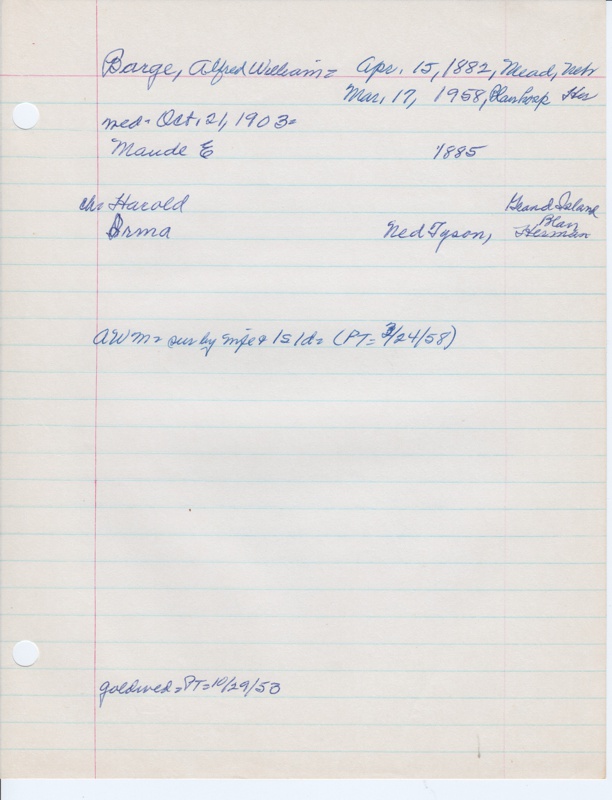 Barge, Alfred William= Apr. 15, 1882, Mead, Neb
Mar. 17, 1958, Blair hosp Her
wed= Oct. 21, 1903=
Maude E 1885
ch= Harold Grand Island
Blair
Irma Ned Tyson, Herman
AWm= sur by wife & 1s 1d= (PT= 3/24/58)
goldwed=PT=10/29/53